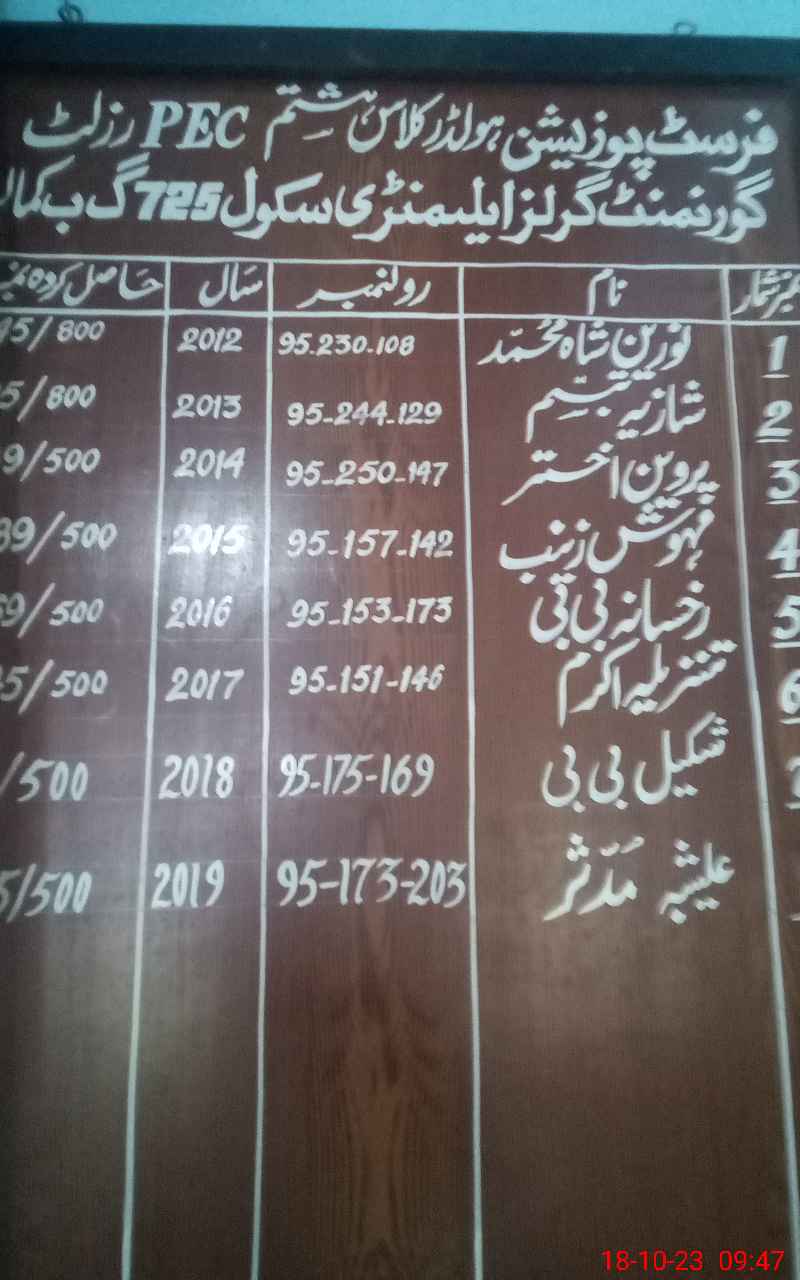 فرسٹ پوزیشن ہولڈر کلاس ہشتم PEC رزلٹ
گورنمنٹ گرلز ایلیمنٹری سکول 725 گ ب کمال
نمبر شمار نام رولنمبر سال حاصل کردہ
1 نورین شاہ محمّد 95.230.108 2012 /800
2 شازیہ تبسّم 95-244-129 2013 5/800
3 پروین اختر 95-250-147 2014 9/500
4 مہوش زینب 95-157-142 2015 39/500
5 رخسانہ بی بی 95-153-173 2016 9/500
6 تنزیلہ اکرم 95-151-146 2017 5/500
شکیل بی بی 95-175-169 2018 /500
علیشبہ مدّثر 95-173-203 2019 5/500
18-10-23 09:47